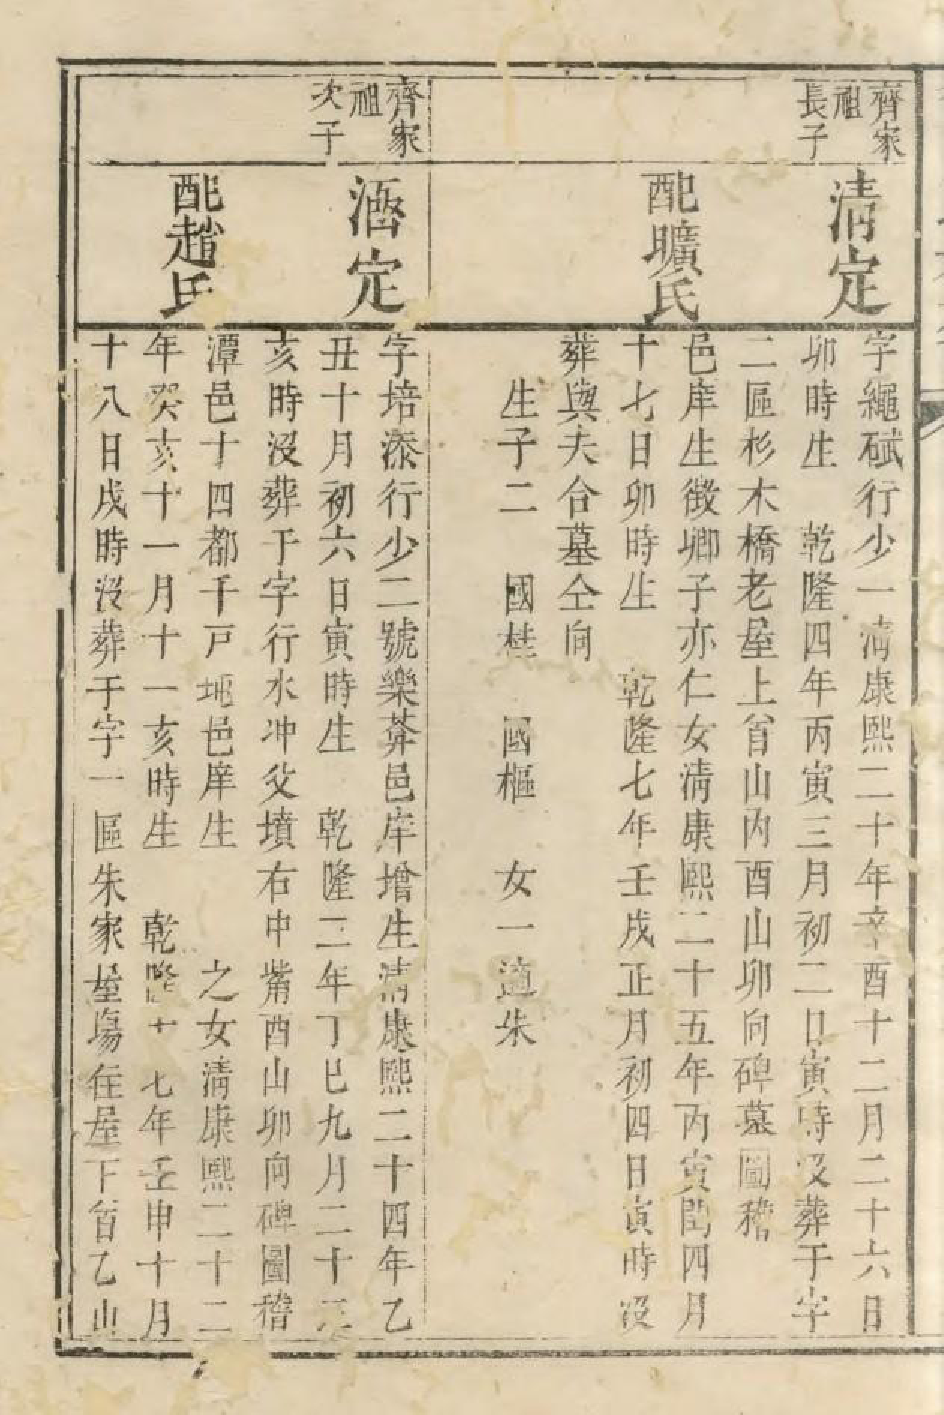 齊家
祖
長子
清定
配曠氏
字繩斌行少一清康熙二十年辛酉十二月二十六日
卯時生 乾隆四年丙寅三月初二日寅時没葬于字
二區杉木橋老屋上首山内酉山卯向碑墓圖稽
邑庠生徵卿子亦仁女清康熙二十五年丙寅閏四月
十七日卯時生 乾隆七年壬戌正月初四日寅時没
葬與夫合墓仝向
生子二 國桂 國樞 女一適朱
齊家
祖
次子
涵定
配趙氏
字培添行少二號樂莽邑庠增生清康熙二十四年乙
丑十月初六日寅時生 乾隆二年丁巳九月二十三
亥時没葬于字行水冲父墳右中觜酉山卯向碑圖稽
潭邑十四都千戸坤邑庠生 之女清康熙二十二
年癸亥十一月十一亥時生 乾隆十七年壬申十月
十八日戌時没葬于字一區朱家屋塲住屋下首乙山